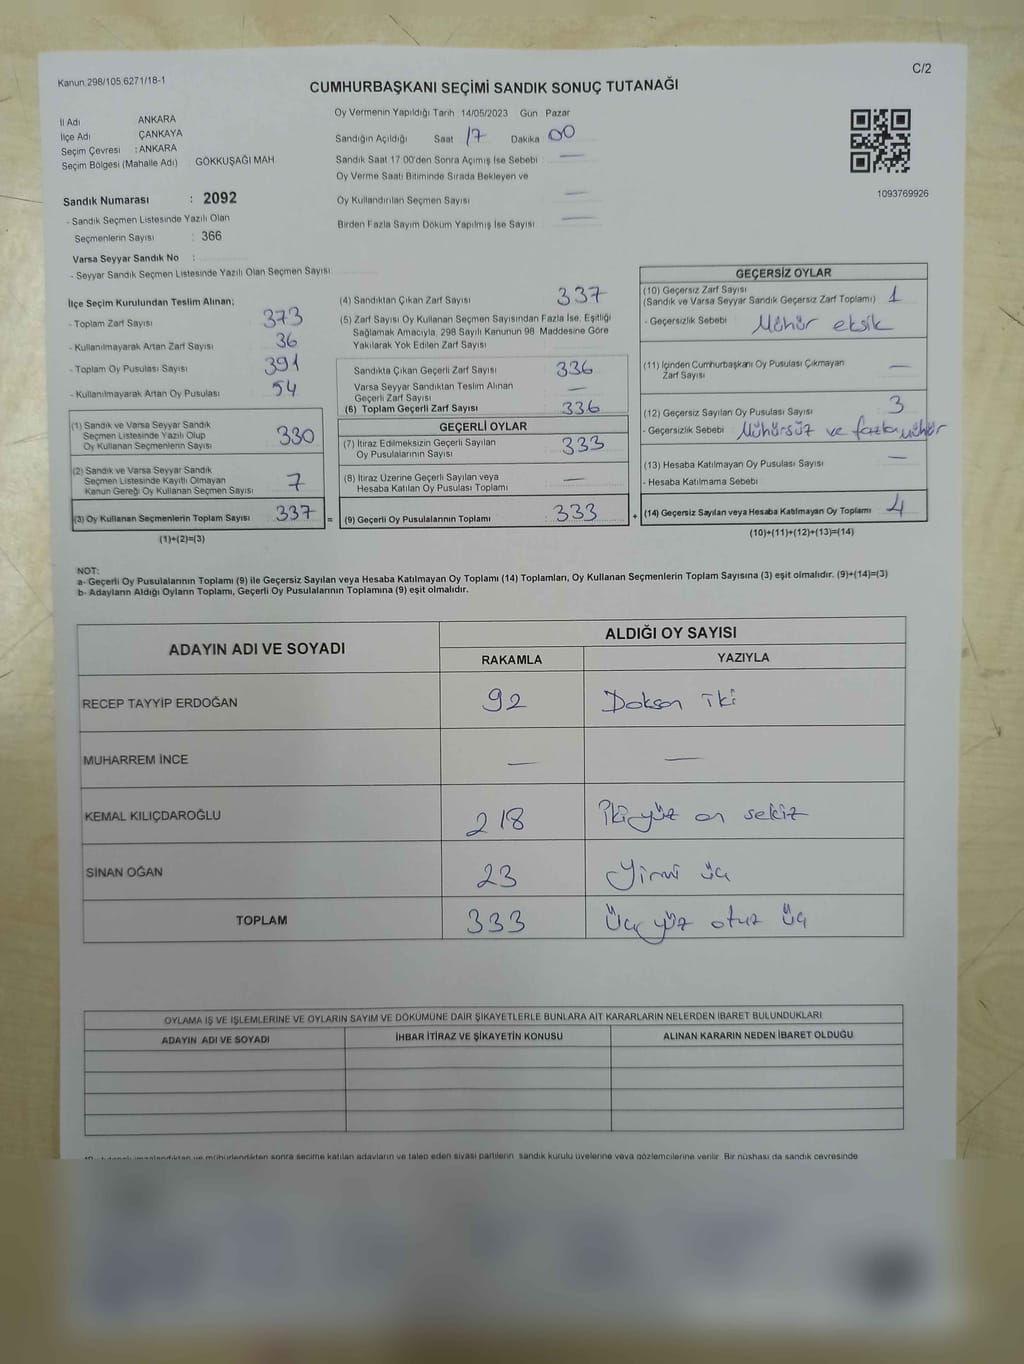 Kanun 298/105,6271/18-1
C/2
CUMHURBAŞKANI SEÇİMİ SANDIK SONUÇ TUTANAĞI
İl Adı ANKARA
İlçe Adı ÇANKAYA
Seçim Çevresi : ANKARA
Seçim Bölgesi (Mahalle Adı) : GÖKKUŞAĞI MAH
Sandık Numarası : 2092
- Sandık Seçmen Listesinde Yazılı Olan
Seçmenlerin Sayısı : 366
Varsa Seyyar Sandık No :
- Seyyar Sandık Seçmen Listesinde Yazılı Olan Seçmen Sayısı
Oy Vermenin Yapıldığı Tarih 14/05/2023 Gün Pazar
Sandığın Açıldığı Saat 17 Dakika 00
Sandık Saat 17 00'den Sonra Açımış İse Sebebi : —
Oy Verme Saati Bitiminde Sırada Bekleyen ve
Oy Kullandırılan Seçmen Sayısı —
Birden Fazla Sayım Döküm Yapılmış İse Sayısı —
1093769926
İlçe Seçim Kurulundan Teslim Alınan;
- Toplam Zarf Sayısı 373
- Kullanılmayarak Artan Zarf Sayısı 36
- Toplam Oy Pusulası Sayısı 391
- Kullanılmayarak Artan Oy Pusulası 54
(1) Sandık ve Varsa Seyyar Sandık
Seçmen Listesinde Yazılı Olup
Oy Kullanan Seçmenlerin Sayısı 330
(2) Sandık ve Varsa Seyyar Sandık
Seçmen Listesinde Kayıtlı Olmayan
Kanun Gereği Oy Kullanan Seçmen Sayısı 7
(3) Oy Kullanan Seçmenlerin Toplam Sayısı 337 =
(1)+(2)=(3)
(4) Sandıktan Çıkan Zarf Sayısı 337
(5) Zarf Sayısı Oy Kullanan Seçmen Sayısından Fazla İse, Eşitliği
Sağlamak Amacıyla, 298 Sayılı Kanunun 98 Maddesine Göre
Yakılarak Yok Edilen Zarf Sayısı
Sandıkta Çıkan Geçerli Zarf Sayısı 336
Varsa Seyyar Sandıktan Teslim Alınan
Geçerli Zarf Sayısı —
(6) Toplam Geçerli Zarf Sayısı 336
GEÇERLİ OYLAR
(7) İtiraz Edilmeksizin Geçerli Sayılan
Oy Pusulalarının Sayısı 333
(8) İtiraz Üzerine Geçerli Sayılan veya
Hesaba Katılan Oy Pusulası Toplamı —
(9) Geçerli Oy Pusulalarının Toplamı : 333 +
GEÇERSİZ OYLAR
(10) Geçersiz Zarf Sayısı
(Sandık ve Varsa Seyyar Sandık Geçersiz Zarf Toplamı) 1
- Geçersizlik Sebebi Mühür eksik
(11) İçinden Cumhurbaşkanı Oy Pusulası Çıkmayan
Zarf Sayısı —
(12) Geçersiz Sayılan Oy Pusulası Sayısı 3
- Geçersizlik Sebebi Mühürsüz ve fazla mühür
(13) Hesaba Katılmayan Oy Pusulası Sayısı —
- Hesaba Katılmama Sebebi
(14) Geçersiz Sayılan veya Hesaba Katılmayan Oy Toplamı 4
(10)+(11)+(12)+(13)=(14)
NOT:
a- Geçerli Oy Pusulalarının Toplamı (9) ile Geçersiz Sayılan veya Hesaba Katılmayan Oy Toplamı (14) Toplamları, Oy Kullanan Seçmenlerin Toplam Sayısına (3) eşit olmalıdır. (9)+(14)=(3)
b- Adayların Aldığı Oyların Toplamı, Geçerli Oy Pusulalarının Toplamına (9) eşit olmalıdır.
ADAYIN ADI VE SOYADI ALDIĞI OY SAYISI
RAKAMLA YAZIYLA
RECEP TAYYİP ERDOĞAN 92 Doksan iki
MUHARREM İNCE — —
KEMAL KILIÇDAROĞLU 218 İkiyüz on sekiz
SİNAN OĞAN 23 Yirmi üç
TOPLAM 333 Üç yüz otuz üç
OYLAMA İŞ VE İŞLEMLERİNE VE OYLARIN SAYIM VE DÖKÜMÜNE DAİR ŞİKAYETLERLE BUNLARA AİT KARARLARIN NELERDEN İBARET BULUNDUKLARI
ADAYIN ADI VE SOYADI İHBAR İTİRAZ VE ŞİKAYETİN KONUSU ALINAN KARARIN NEDEN İBARET OLDUĞU
sonra seçime katılan adayların ve talep eden siyasi partilerin sandık kurulu üyelerine veya gözlemcilerine verilir. Bir nüshası da sandık çevresinde